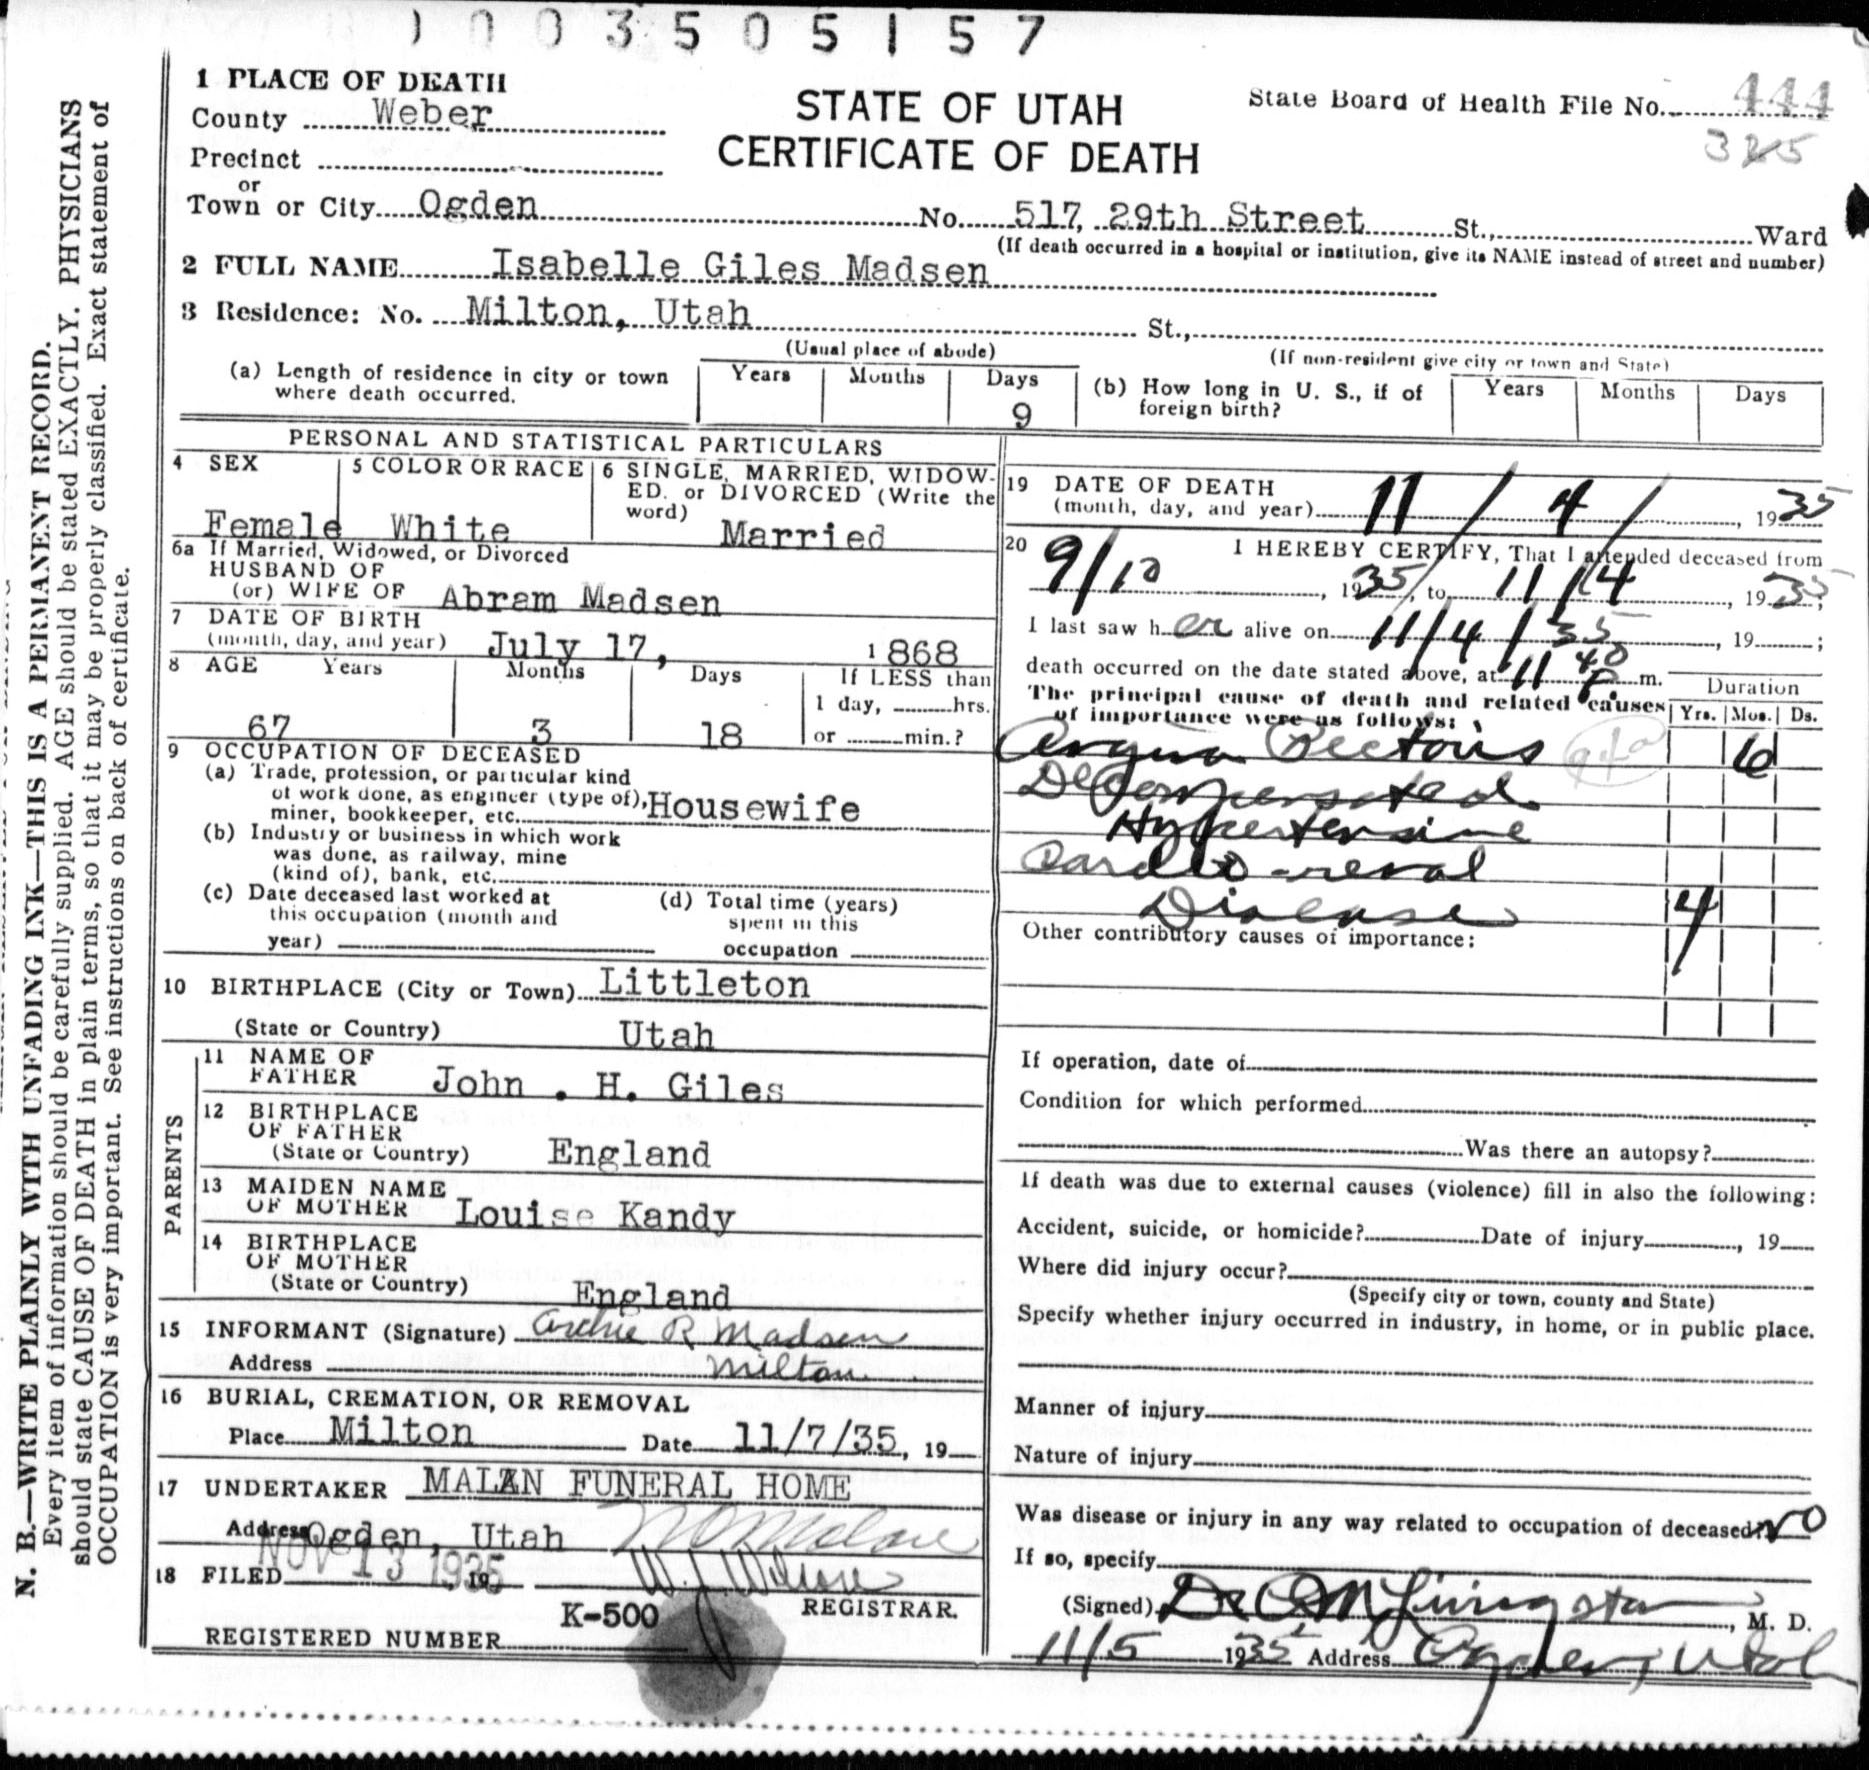 1003505157
1 PLACE OF DEATH
County Weber
STATE OF UTAH
CERTIFICATE OF DEATH
State Board of Health File No. 444
325
Precinct
or
Town or City Ogden No. 517, 29th Street St., Ward
(If death occurred in a hospital or institution, give its NAME instead of street and number)
2 FULL NAME Isabelle Giles Madsen
3 Residence: No. Milton, Utah St.,
(Usual place of abode) (If non-resident give city or town and State)
(a) Length of residence in city or town where death occurred. Years Months Days 9
(b) How long in U. S., if of foreign birth? Years Months Days
PERSONAL AND STATISTICAL PARTICULARS
4 SEX Female
5 COLOR OR RACE White
6 SINGLE, MARRIED, WIDOW-
ED, or DIVORCED (Write the
word) Married
6a If Married, Widowed, or Divorced
HUSBAND OF
(or) WIFE OF Abram Madsen
7 DATE OF BIRTH
(month, day, and year) July 17, 1868
8 AGE Years Months Days If LESS than
1 day, hrs.
67 3 18 or min.?
9 OCCUPATION OF DECEASED
(a) Trade, profession, or particular kind
of work done, as engineer (type of),
miner, bookkeeper, etc. Housewife
(b) Industry or business in which work
was done, as railway, mine
(kind of), bank, etc.
(c) Date deceased last worked at
this occupation (month and
year)
(d) Total time (years)
spent in this
occupation
10 BIRTHPLACE (City or Town) Littleton
(State or Country) Utah
PARENTS
11 NAME OF
FATHER John . H. Giles
12 BIRTHPLACE
OF FATHER
(State or Country) England
13 MAIDEN NAME
OF MOTHER Louise Kandy
14 BIRTHPLACE
OF MOTHER
(State or Country) England
15 INFORMANT (Signature) Archie R Madsen
Address Milton
16 BURIAL, CREMATION, OR REMOVAL
Place Milton Date 11/7/35, 19
17 UNDERTAKER MALAN FUNERAL HOME
Address Ogden, Utah
18 FILED NOV 13 1935, 19
REGISTRAR.
K-500
REGISTERED NUMBER
19 DATE OF DEATH
(month, day, and year) 11 / 4 / , 1935
20 I HEREBY CERTIFY, That I attended deceased from
9/10, 1935, to 11/4, 1935;
I last saw her alive on 11/4/35, 19 ;
death occurred on the date stated above, at 11 40 P. m.
The principal cause of death and related causes
of importance were as follows:
Duration
Yrs. Mos. Ds.
Angina Pectoris 94a 6
Decompensated
Hypertensive
Cardio-renal
Disease 4
Other contributory causes of importance:
If operation, date of
Condition for which performed
Was there an autopsy?
If death was due to external causes (violence) fill in also the following:
Accident, suicide, or homicide? Date of injury , 19
Where did injury occur?
(Specify city or town, county and State)
Specify whether injury occurred in industry, in home, or in public place.
Manner of injury
Nature of injury
Was disease or injury in any way related to occupation of deceased? No
If so, specify
(Signed) Dr Livingston, M. D.
11/5 1935 Address Ogden, Utah
N. B.—WRITE PLAINLY WITH UNFADING INK—THIS IS A PERMANENT RECORD.
Every item of information should be carefully supplied. AGE should be stated EXACTLY. PHYSICIANS
should state CAUSE OF DEATH in plain terms, so that it may be properly classified. Exact statement of
OCCUPATION is very important. See instructions on back of certificate.